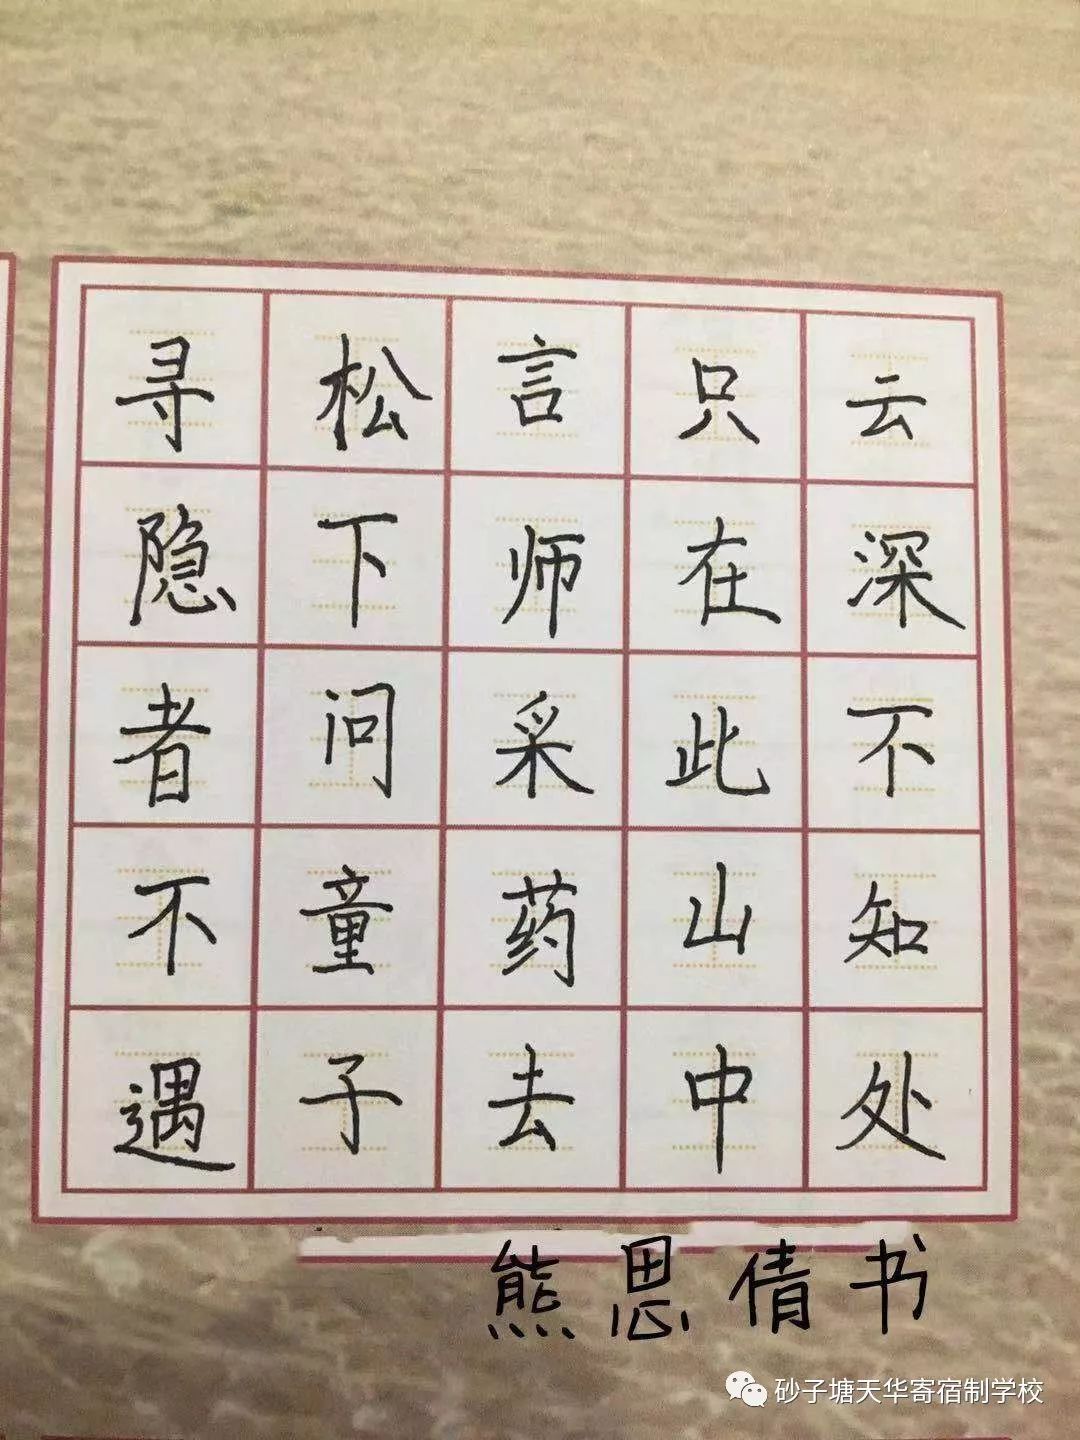 寻隐者不遇
松下问童子
言师采药去
只在此山中
云深不知处
熊思倩书
砂子塘天华寄宿制学校